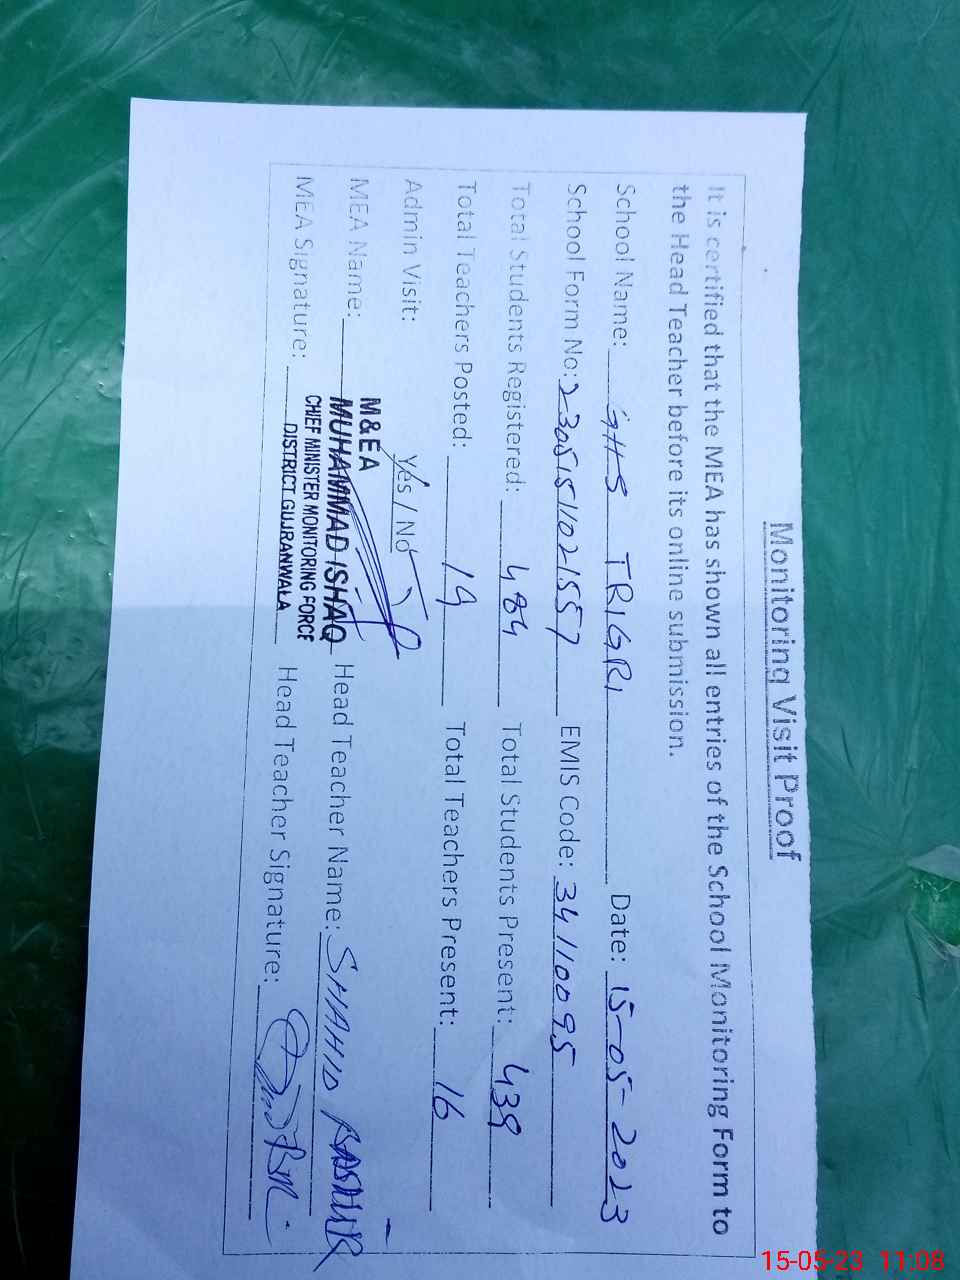 Monitoring Visit Proof
It is certified that the MEA has shown all entries of the School Monitoring Form to
the Head Teacher before its online submission.
School Name: GHS TRIGRI Date: 15-05-2023
School Form No: 23051511021557 EMIS Code: 34110095
Total Students Registered: 484 Total Students Present: 439
Total Teachers Posted: 19 Total Teachers Present: 16
Admin Visit: Yes / No
M & EA
MEA Name: MUHAMMAD ISHAQ Head Teacher Name: SHAHID BASHIR
CHIEF MINISTER MONITORING FORCE
MEA Signature: DISTRICT GUJRANWALA Head Teacher Signature:
15-05-23 11:08